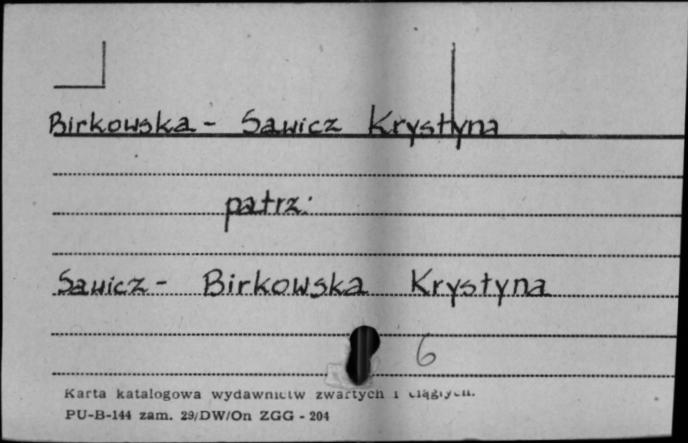 Birkowska - Sawicz Krystyna
patrz:
Sawicz - Birkowska Krystyna
6
Karta katalogowa wydawnictw zwartych i ciągłych.
PU-B-144 zam. 29/DW/On ZGG - 204